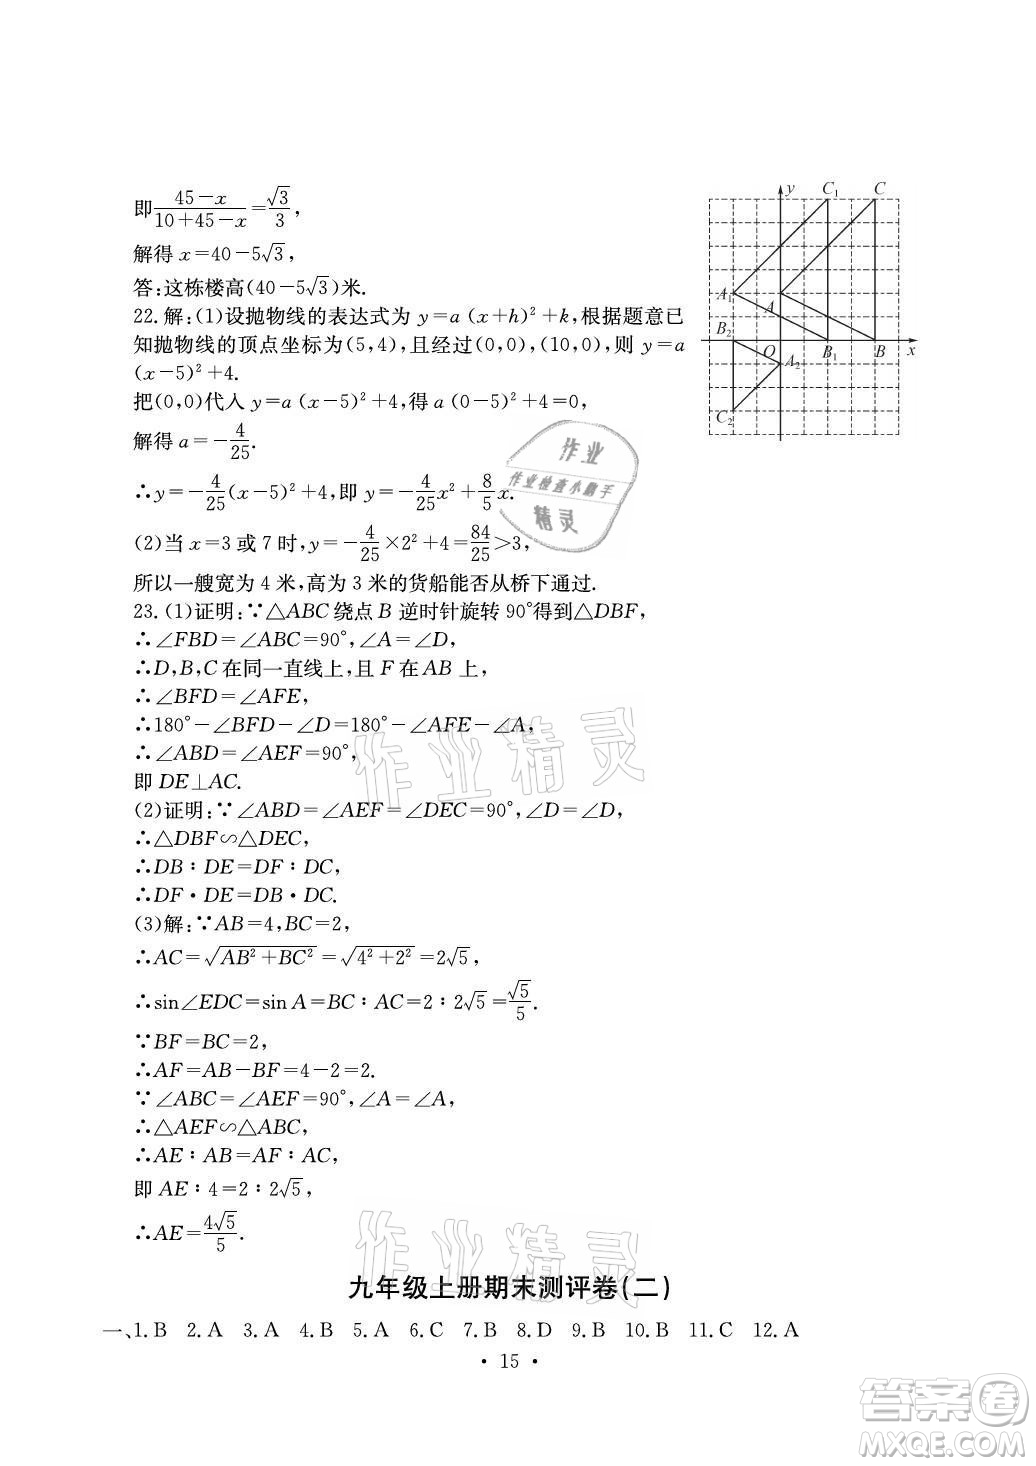 即(45-x)/(10+45-x)=√3/3,
解得 x=40-5√3,
答:这栋楼高(40-5√3)米.
22.解:(1)设抛物线的表达式为 y=a(x+h)²+k,根据题意已
知抛物线的顶点坐标为(5,4),且经过(0,0),(10,0),则 y=a
(x-5)²+4.
把(0,0)代入 y=a(x-5)²+4,得 a(0-5)²+4=0,
解得 a=-4/25.
∴y=-4/25(x-5)²+4,即 y=-4/25x²+8/5x.
(2)当 x=3 或 7 时,y=-4/25×2²+4=84/25>3,
所以一艘宽为 4 米,高为 3 米的货船能否从桥下通过.
23.(1)证明:∵△ABC 绕点 B 逆时针旋转 90°得到△DBF,
∴∠FBD=∠ABC=90°,∠A=∠D,
∴D,B,C 在同一直线上,且 F 在 AB 上,
∴∠BFD=∠AFE,
∴180°-∠BFD-∠D=180°-∠AFE-∠A,
∴∠ABD=∠AEF=90°,
即 DE⊥AC.
(2)证明:∵∠ABD=∠AEF=∠DEC=90°,∠D=∠D,
∴△DBF∽△DEC,
∴DB∶DE=DF∶DC,
∴DF·DE=DB·DC.
(3)解:∵AB=4,BC=2,
∴AC=√(AB²+BC²)=√(4²+2²)=2√5,
∴sin∠EDC=sin A=BC∶AC=2∶2√5=√5/5.
∵BF=BC=2,
∴AF=AB-BF=4-2=2.
∵∠ABC=∠AEF=90°,∠A=∠A,
∴△AEF∽△ABC,
∴AE∶AB=AF∶AC,
即 AE∶4=2∶2√5,
∴AE=4√5/5.
y C₁ C
A₁ A
B₂ O A₂ B₁ B x
C₂
作业
作业检查小助手
精灵
作业精灵
作业精灵
九年级上册期末测评卷(二)
一、1.B 2.A 3.A 4.B 5.A 6.C 7.B 8.D 9.B 10.B 11.C 12.A
· 15 ·
答案卷
MXQE.COM